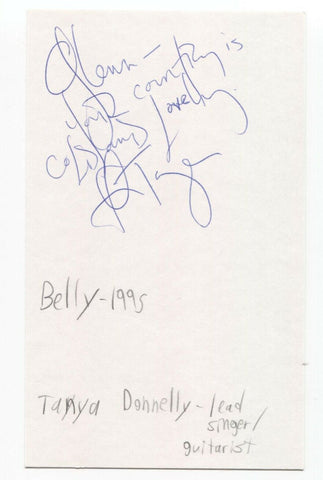 Glenn -
your country is
cold and lovely.
Belly-1995
Tanya Donnelly - lead
singer/
guitarist